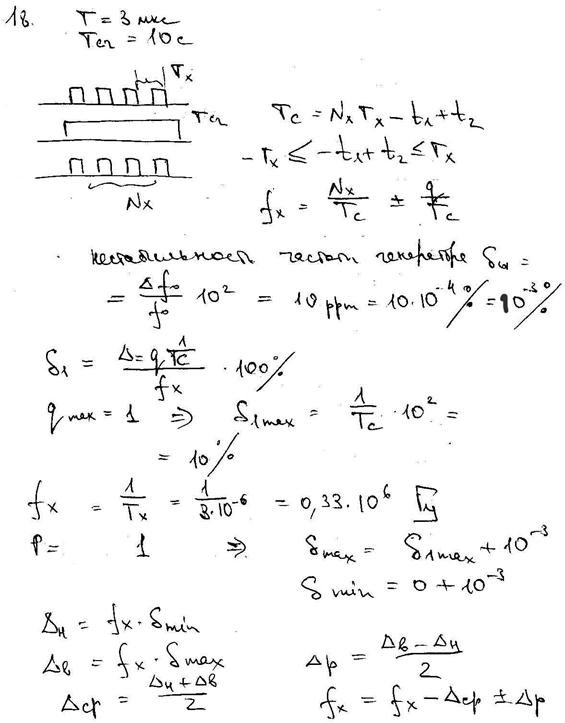 18. T = 3 мкс
Tсч = 10 с
Tx
Tсч
Nx
Tc = Nx Tx − t1 + t2
− Tx ≤ − t1 + t2 ≤ Tx
fx = Nx/Tc ± q/Tc
нестабильность частоты генератора δ =
= Δfo/fo 10² = 10 ppm = 10·10⁻⁴% = 10⁻³%
δ1 = (Δ = q 1/Tc)/fx · 100%
q max = 1 ⇒ δ1max = 1/Tc · 10² =
= 10%
fx = 1/Tx = 1/3·10⁻⁶ = 0,33·10⁶ Гц
P = 1 ⇒ δmax = δ1max + 10⁻³
δmin = 0 + 10⁻³
Δн = fx · δmin
Δв = fx · δmax
Δср = (Δн + Δв)/2
Δp = (Δв − Δн)/2
fx = fx − Δср ± Δp